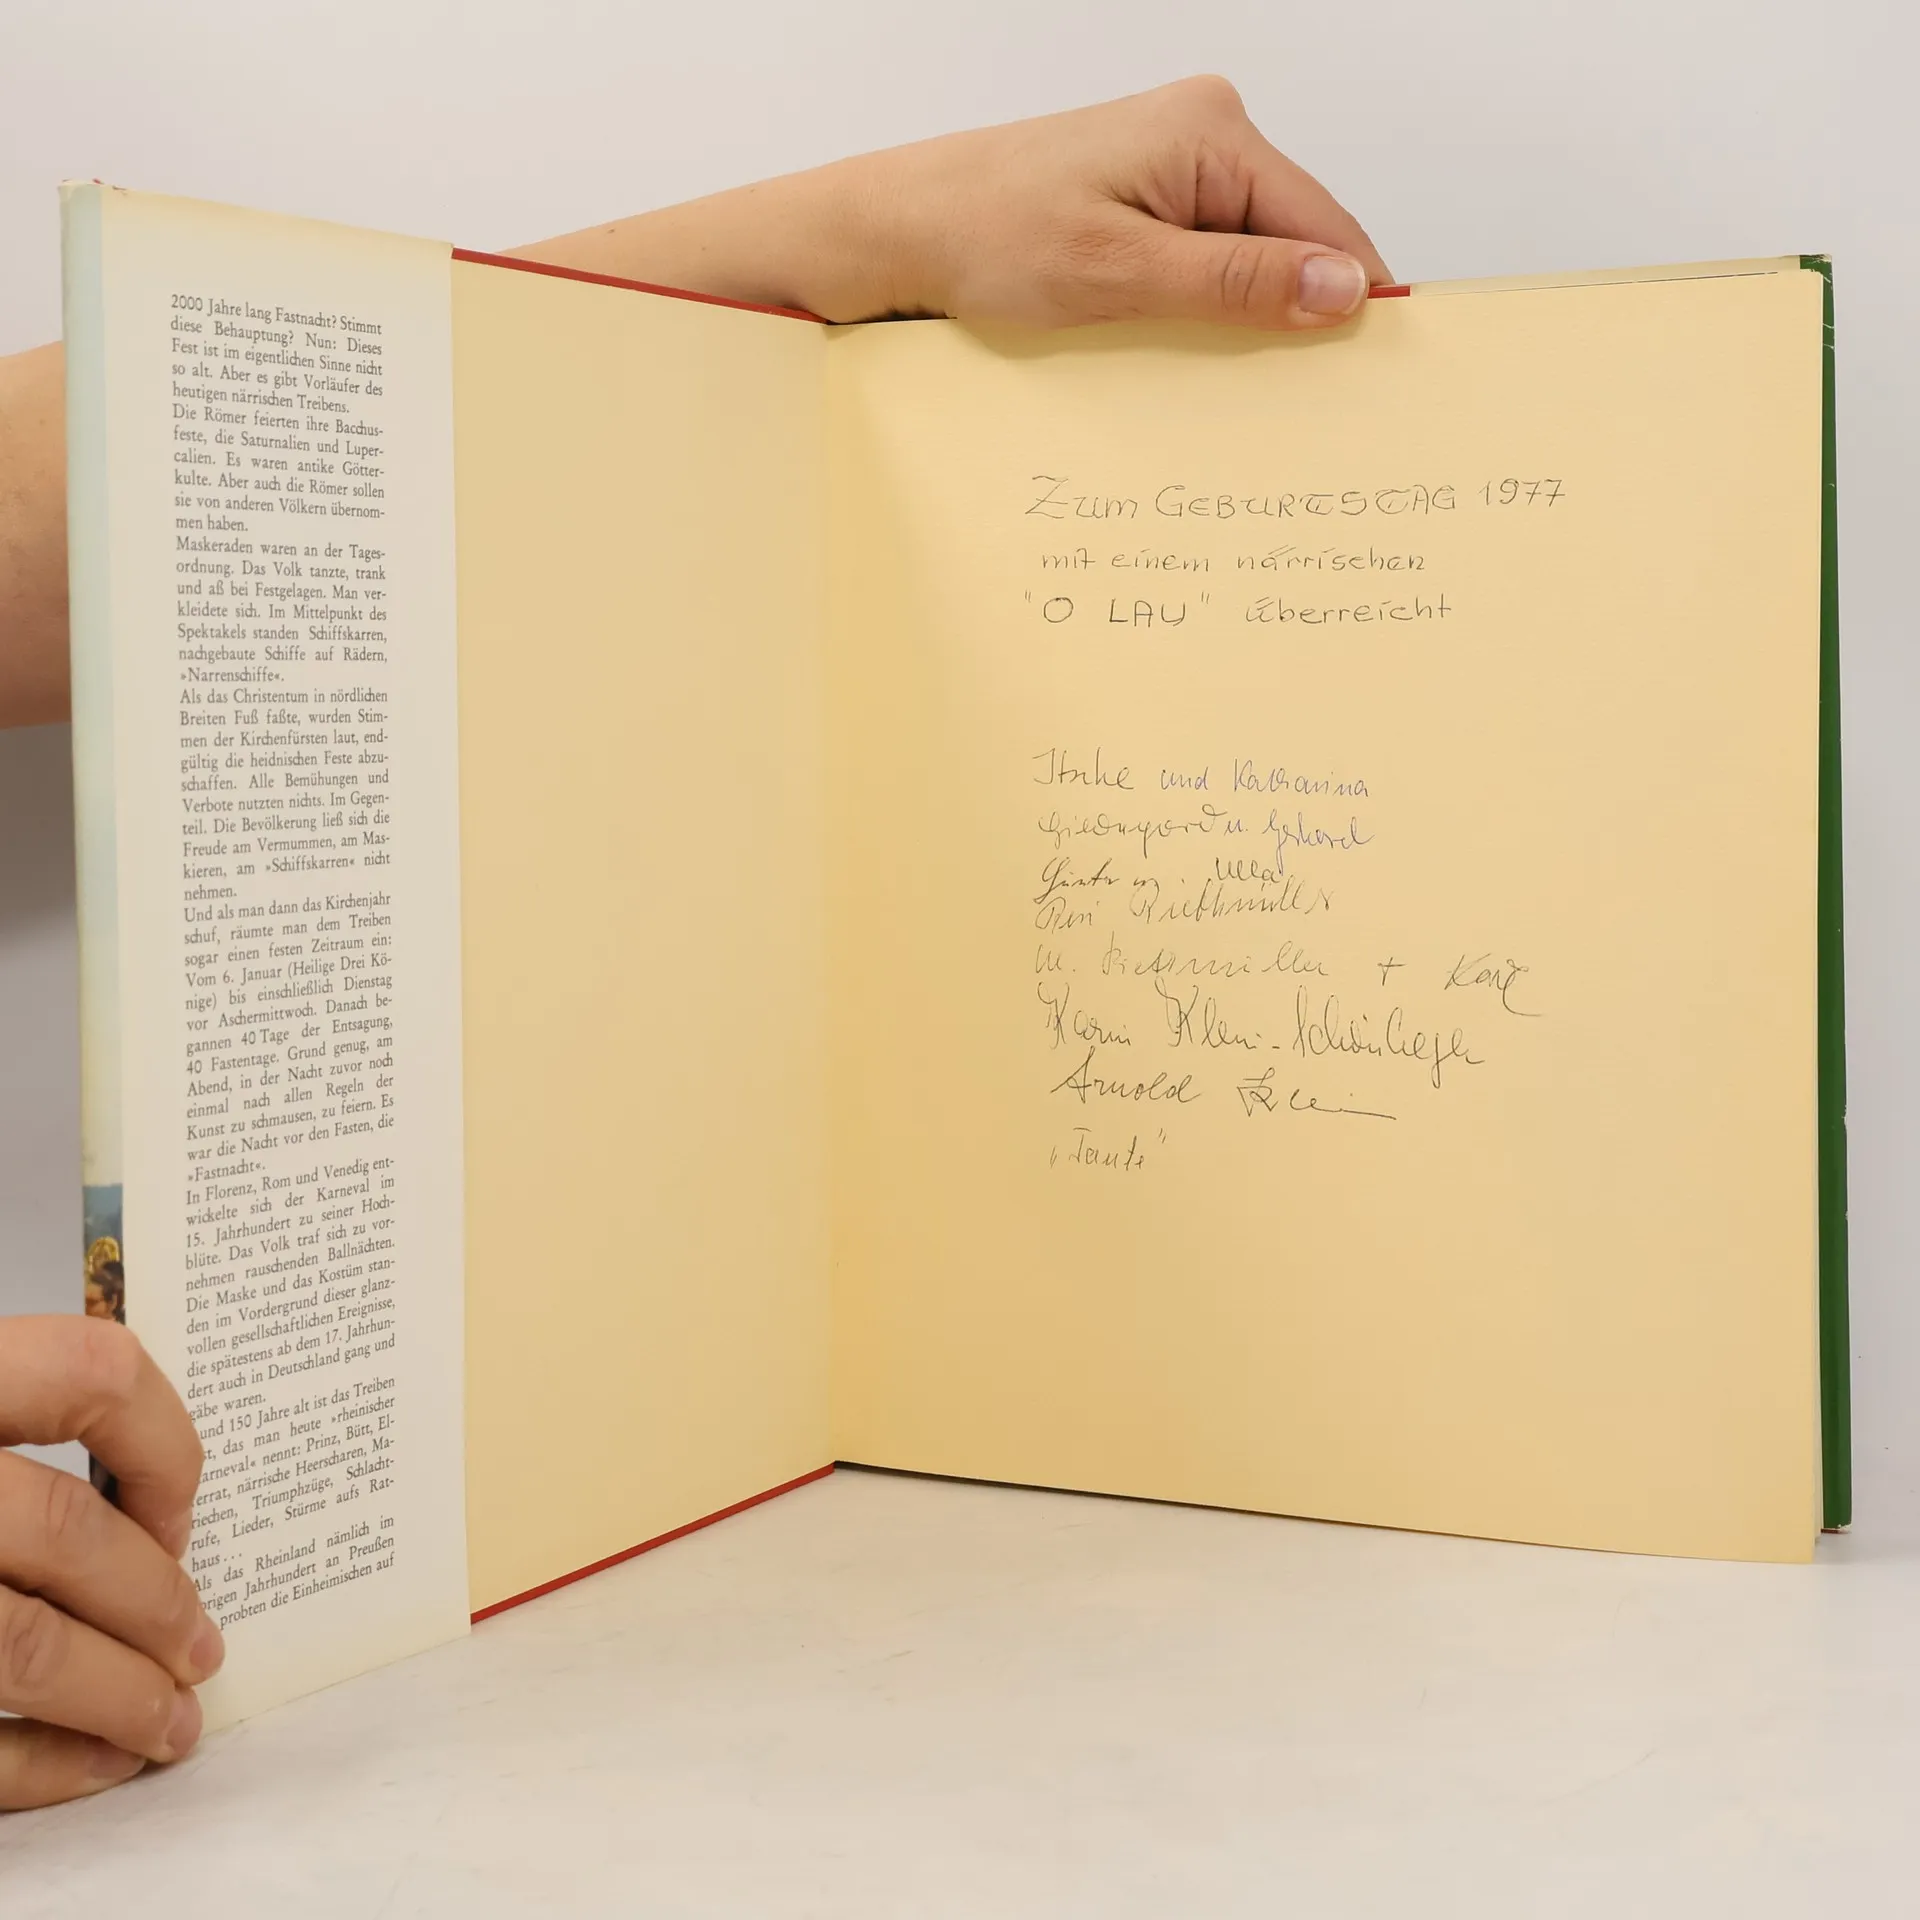 2000 Jahre lang Fastnacht? Stimmt
diese Behauptung? Nun: Dieses
Fest ist im eigentlichen Sinne nicht
so alt. Aber es gibt Vorläufer des
heutigen närrischen Treibens.
Die Römer feierten ihre Bacchus-
feste, die Saturnalien und Luper-
calien. Es waren antike Götter-
kulte. Aber auch die Römer sollen
sie von anderen Völkern übernom-
men haben.
Maskeraden waren an der Tages-
ordnung. Das Volk tanzte, trank
und aß bei Festgelagen. Man ver-
kleidete sich. Im Mittelpunkt des
Spektakels standen Schiffskarren,
nachgebaute Schiffe auf Rädern,
»Narrenschiffe«.
Als das Christentum in nördlichen
Breiten Fuß faßte, wurden Stim-
men der Kirchenfürsten laut, end-
gültig die heidnischen Feste abzu-
schaffen. Alle Bemühungen und
Verbote nutzten nichts. Im Gegen-
teil. Die Bevölkerung ließ sich die
Freude am Vermummen, am Mas-
kieren, am »Schiffskarren« nicht
nehmen.
Und als man dann das Kirchenjahr
schuf, räumte man dem Treiben
sogar einen festen Zeitraum ein:
Vom 6. Januar (Heilige Drei Kö-
nige) bis einschließlich Dienstag
vor Aschermittwoch. Danach be-
gannen 40 Tage der Entsagung,
40 Fastentage. Grund genug, am
Abend, in der Nacht zuvor noch
einmal nach allen Regeln der
Kunst zu schmausen, zu feiern. Es
war die Nacht vor den Fasten, die
»Fastnacht«.
In Florenz, Rom und Venedig ent-
wickelte sich der Karneval im
15. Jahrhundert zu seiner Hoch-
blüte. Das Volk traf sich zu vor-
nehmen rauschenden Ballnächten.
Die Maske und das Kostüm stan-
den im Vordergrund dieser glanz-
vollen gesellschaftlichen Ereignisse,
die spätestens ab dem 17. Jahrhun-
dert auch in Deutschland gang und
gäbe waren.
und 150 Jahre alt ist das Treiben
st, das man heute »rheinischer
arneval« nennt: Prinz, Bütt, El-
errat, närrische Heerscharen, Ma-
riechen, Triumphzüge, Schlacht-
rufe, Lieder, Stürme aufs Rat-
haus . . .
Als das Rheinland nämlich im
origen Jahrhundert an Preußen
probten die Einheimischen auf
ZUM GEBURTSTAG 1977
mit einem närrischen
"O LAU" überreicht
und Katharina
u. Gerhard
Günter u. Ulla
+ Karl
Karin Klein-Schönberger
Arnold Klein
"Tante"